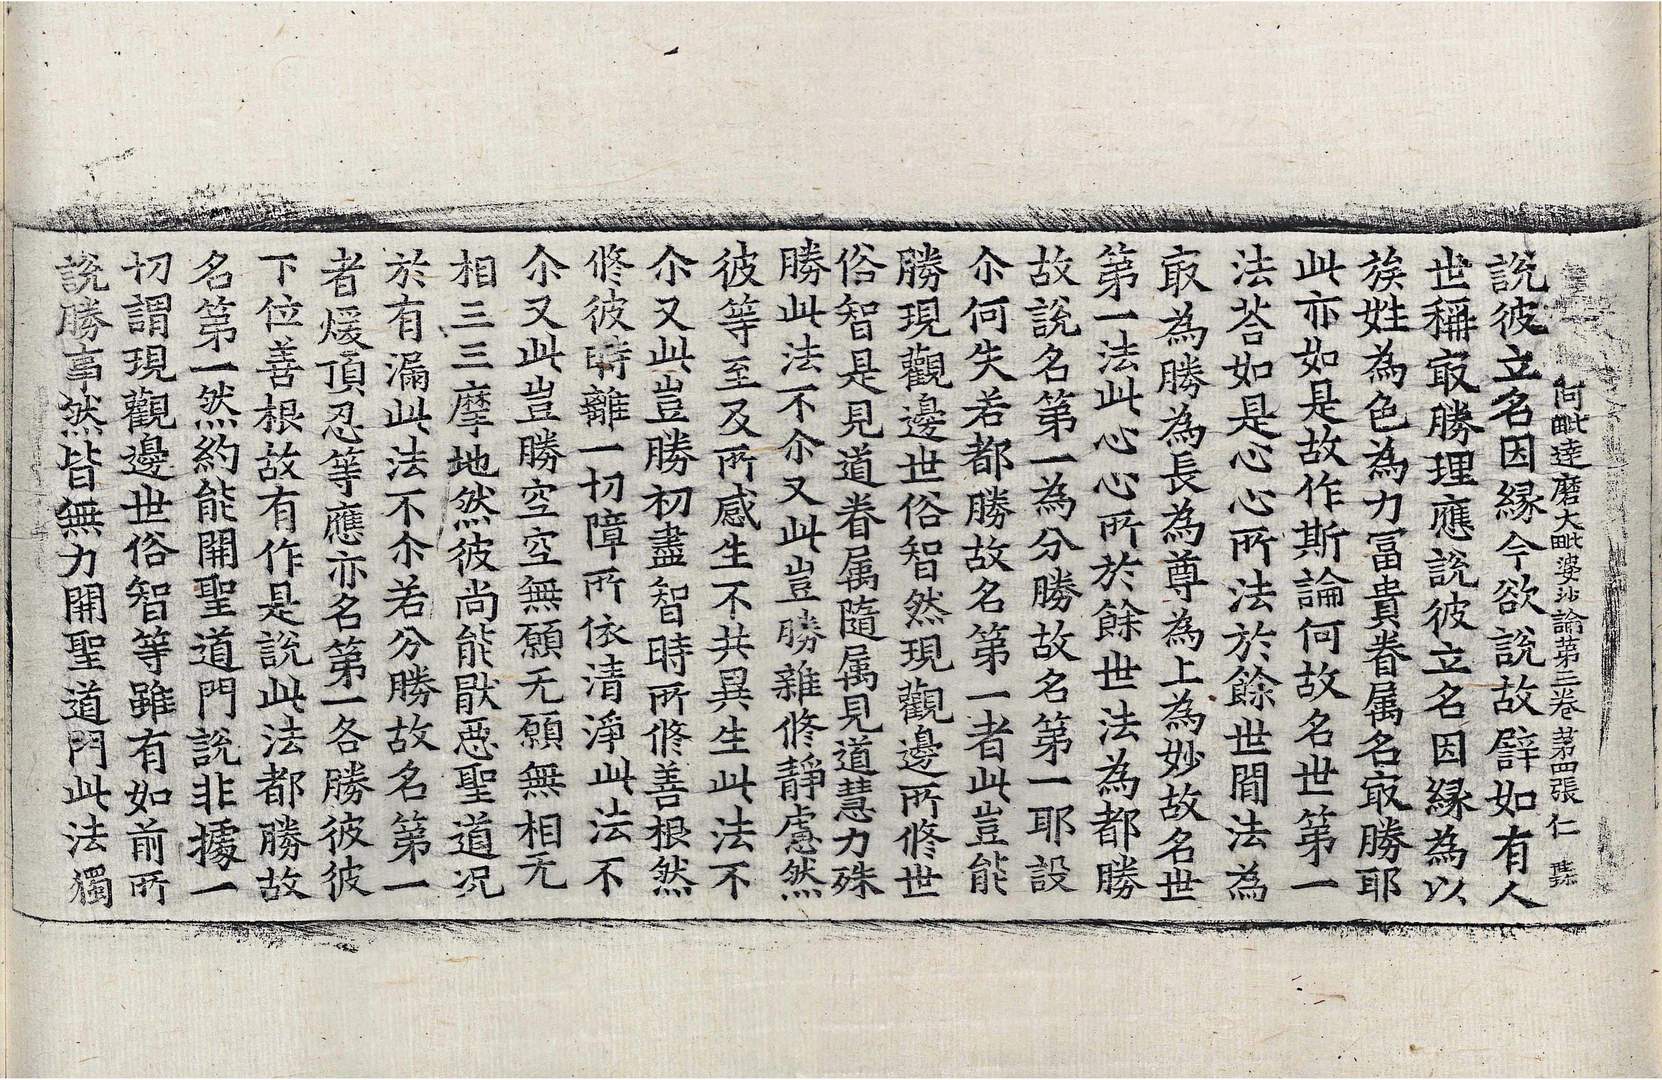 阿毗達磨大毗婆沙論第三卷 第四張 仁
說彼立名因緣今欲說故辟如有人
世稱㝡勝理應說彼立名因緣為以
族姓為色為力冨貴眷属名㝡勝耶
此亦如是故作斯論何故名世第一
法荅如是心心所法於餘世間法為
㝡為勝為長為尊為上為妙故名世
第一法此心心所於餘世法為都勝
故說名第一為分勝故名第一耶設
尒何失若都勝故名第一者此豈能
勝現觀邊世俗智然現觀邊所修世
俗智是見道眷属隨属見道慧力殊
勝此法不尒又此豈勝雜修靜慮然
彼等至及所感生不共異生此法不
尒又此豈勝初盡智時所修善根然
修彼時離一切障所依清淨此法不
尒又此豈勝空空無願无願無相无
相三三摩地然彼尚能猒惡聖道况
於有漏此法不尒若分勝故名第一
者煖頂忍等應亦名第一各勝彼彼
下位善根故有作是說此法都勝故
名第一然約能開聖道門說非據一
切謂現觀邊世俗智等雖有如前所
說勝事然皆無力開聖道門此法獨